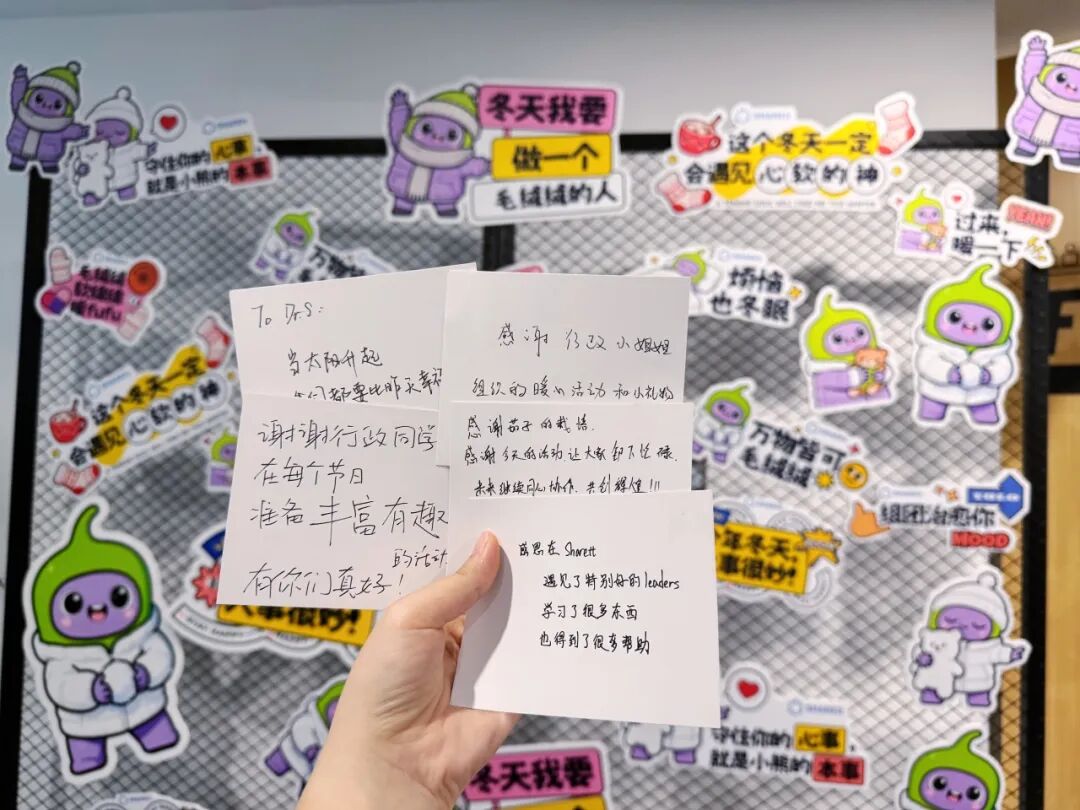 守住你的 心事，
就是小熊的 本事
冬天我要
做一个
毛绒绒的人
这个冬天一定
会遇见 心软的神
过来，
暖一下
YEAH!
毛绒绒
软绵绵
暖fufu
万物
烦恼
也冬眠
这个冬天一定
会遇见 心软的神
万物皆可
毛绒绒
组团治愈你
MOOD
年冬天，
事很妙!
大事很妙!
To Dr.S:
当太阳升起
都要比昨天幸福
谢谢行政同学
在每个节日
准备丰富有趣
的活动
有你们真好!
感谢 行政 小姐姐
组织的暖心活动和小礼物
感谢茄子的栽培.
感谢今天的活动让大家卸下忙碌.
未来继续同心协作，共创辉煌!!!
感恩在 Sharett
遇见了特别好的leaders
学习了很多东西
也得到了很多帮助
守住你的 心事，
就是小熊的 本事
冬天我要